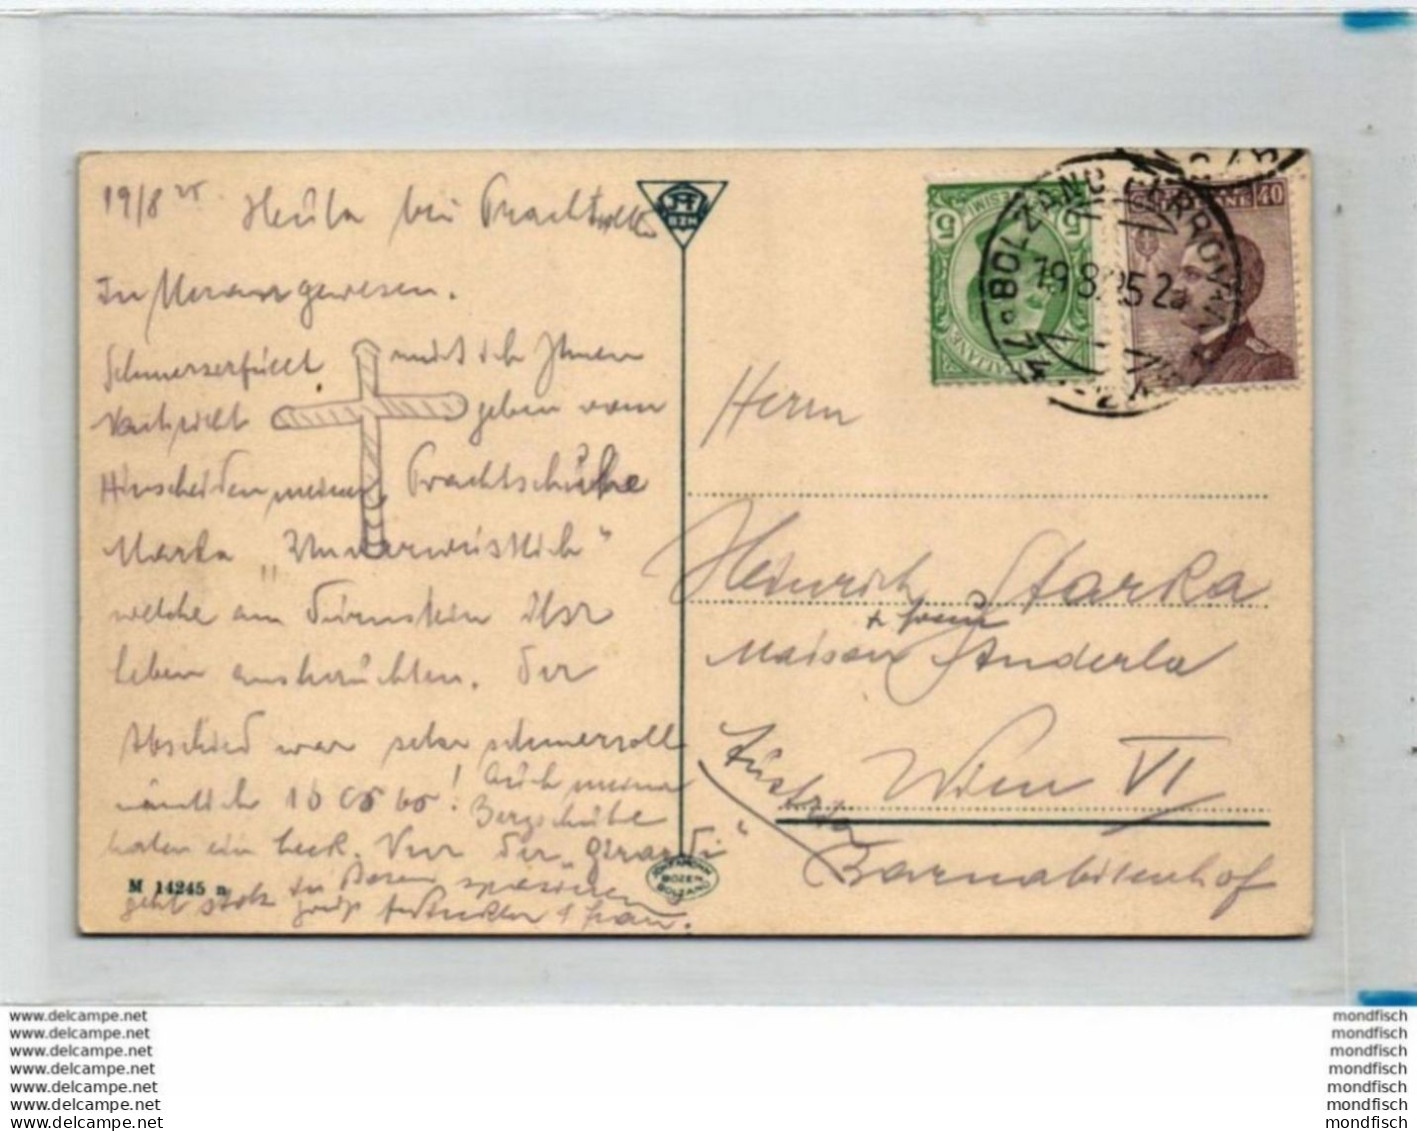 19/8 25 Heute bei Pracht
In Meran gewesen.
Schmerzerfüllt muss ich Ihnen
Nachricht geben vom
Hinscheiden meiner Prachtschuhe
Marke "Unverwüstlich"
welche am Ihr
Leben aushauchten. Der
Abschied war sehr schmerzvoll
nämlich ! Auch meine
Bergschuhe
haben ein Leck. Nur der "Girardi"
geht stolz in Bozen spazieren
M 14245 n
Frau.
BOZEN
BOLZANO
BOLZANO FERROVIA
19 8 25 2
40
5
Herrn
Heinrich Starka
+ Frau
Maison Anderla
Wien VI
Austria
Barnabitenhof
www.delcampe.net
www.delcampe.net
www.delcampe.net
www.delcampe.net
www.delcampe.net
www.delcampe.net
www.delcampe.net
mondfisch
mondfisch
mondfisch
mondfisch
mondfisch
mondfisch
mondfisch